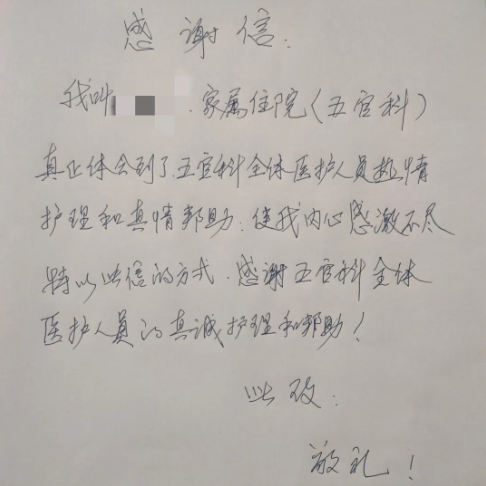 感谢信:
我叫 .家属住院(五官科)
真正体会到了五官科全体医护人员热情
护理和真情帮助.使我内心感激不尽
特以此信的方式.感谢五官科全体
医护人员的真诚护理和帮助!
此致:
敬礼!